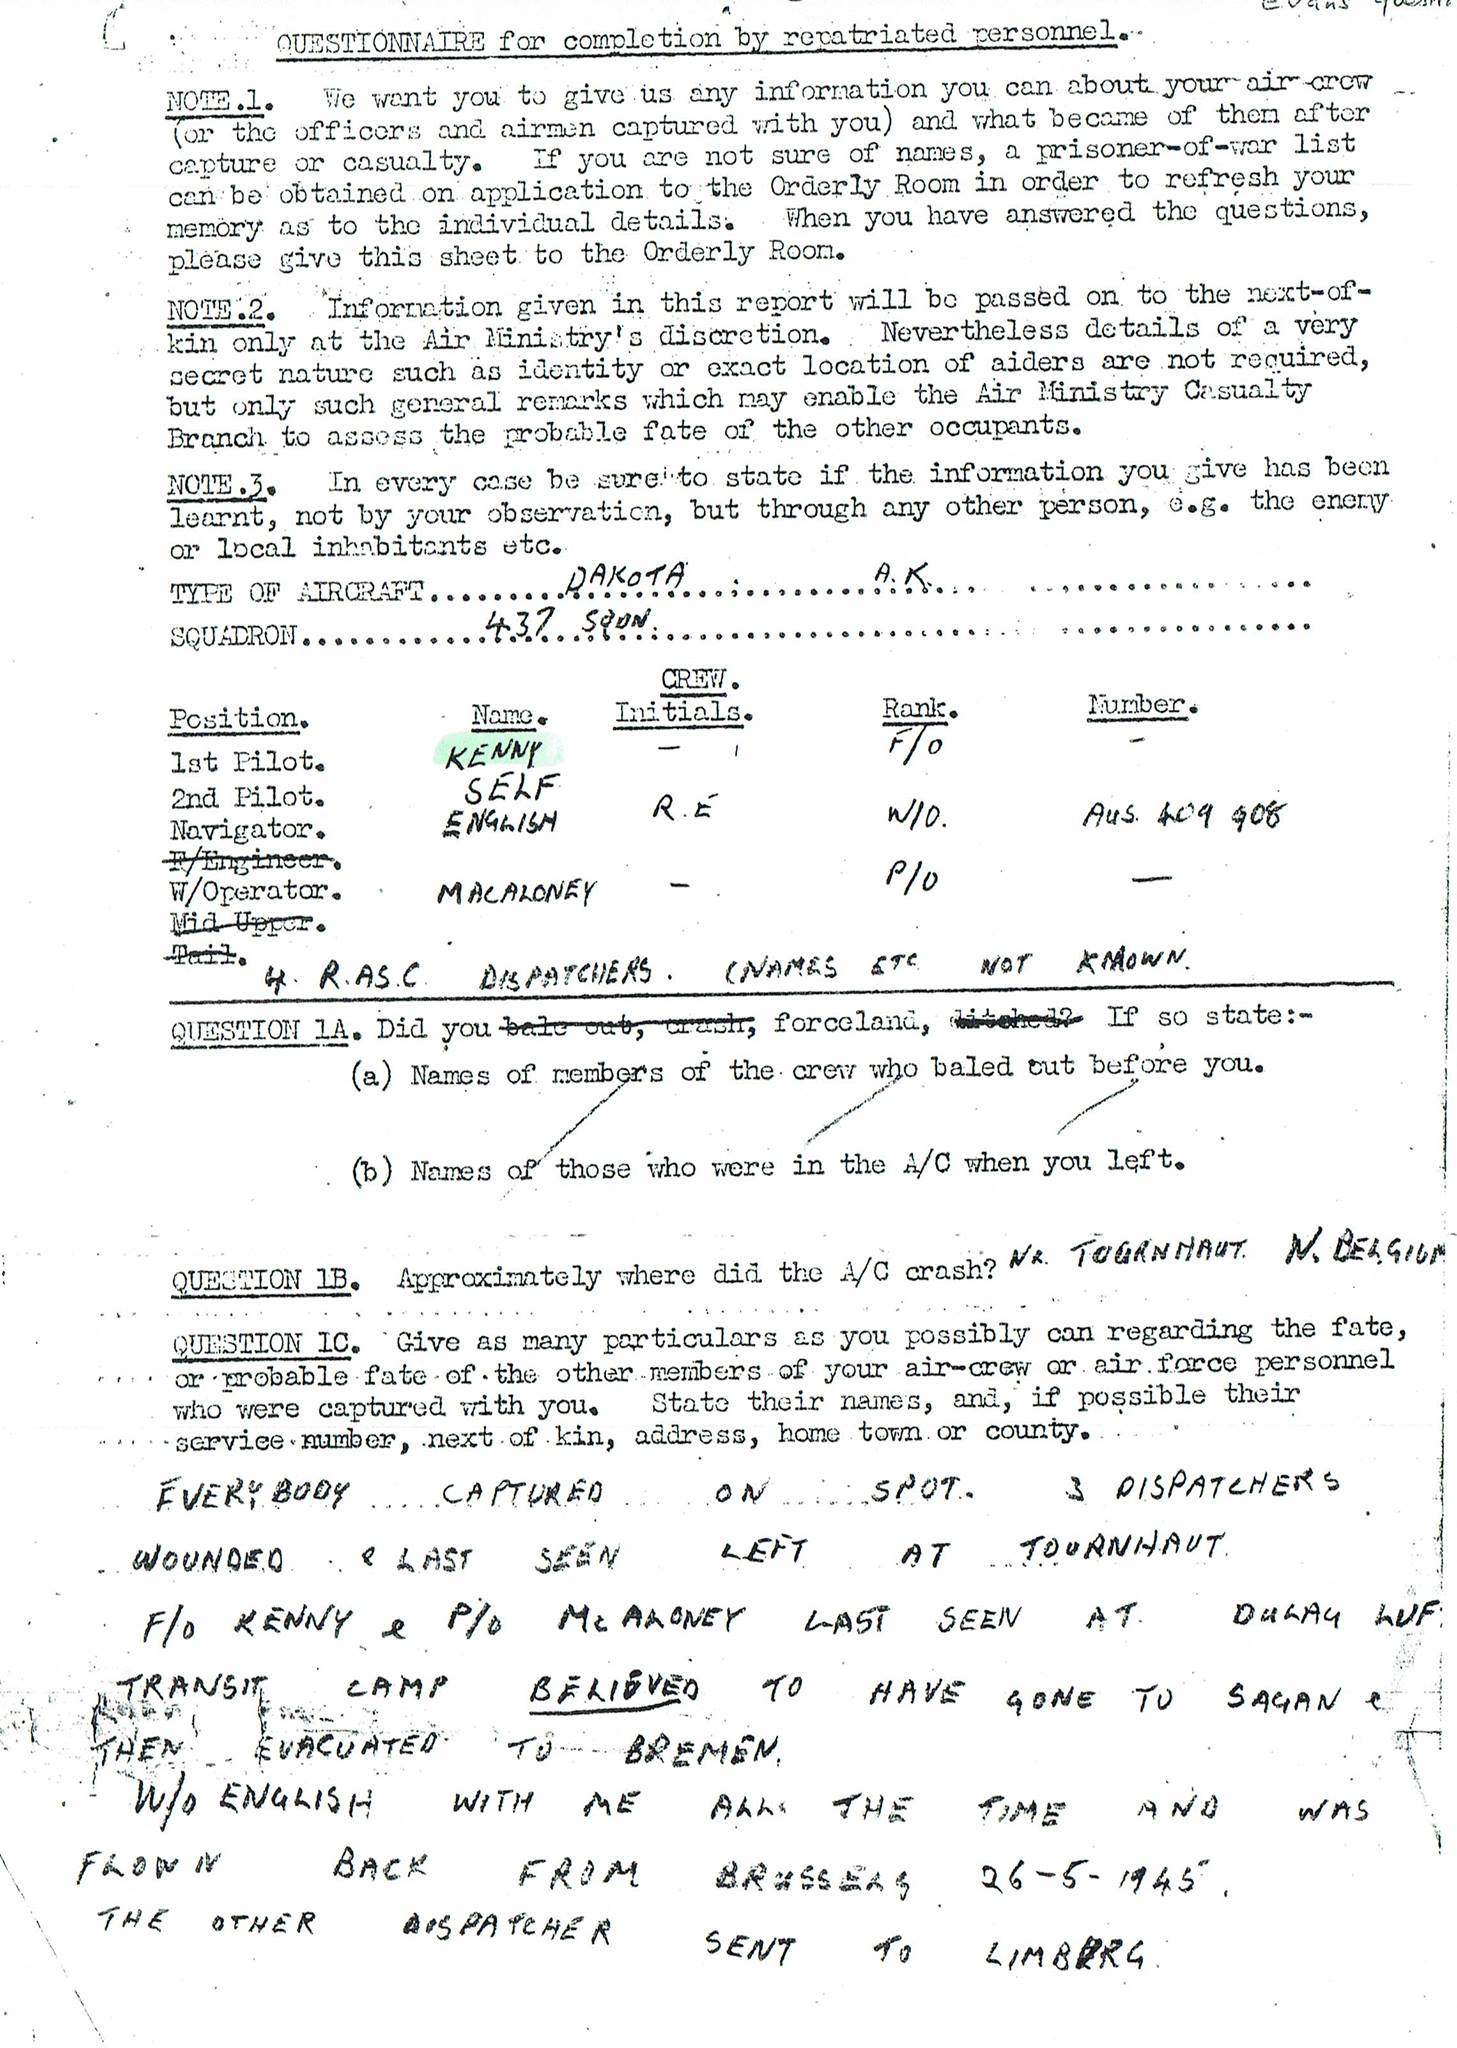 Evans
QUESTIONNAIRE for completion by repatriated personnel.
NOTE.1. We want you to give us any information you can about your air-crew
(or the officers and airmen captured with you) and what became of them after
capture or casualty. If you are not sure of names, a prisoner-of-war list
can be obtained on application to the Orderly Room in order to refresh your
memory as to the individual details. When you have answered the questions,
please give this sheet to the Orderly Room.
NOTE.2. Information given in this report will be passed on to the next-of-
kin only at the Air Ministry's discretion. Nevertheless details of a very
secret nature such as identity or exact location of aiders are not required,
but only such general remarks which may enable the Air Ministry Casualty
Branch to assess the probable fate of the other occupants.
NOTE.3. In every case be sure to state if the information you give has been
learnt, not by your observation, but through any other person, e.g. the enemy
or local inhabitants etc.
TYPE OF AIRCRAFT DAKOTA A.K.
SQUADRON 437 SQDN.
CREW.
Position. Name. Initials. Rank. Number.
1st Pilot. KENNY - F/O -
2nd Pilot. SELF
Navigator. ENGLISH R.E W/O. AUS. 409 908
F/Engineer.
W/Operator. MACALONEY - P/O -
Mid Upper.
Tail.
4. R.A.S.C. DISPATCHERS. (NAMES ETC NOT KNOWN.
QUESTION 1A. Did you bale out, crash, forceland, ditched? If so state:-
(a) Names of members of the crew who baled out before you.
(b) Names of those who were in the A/C when you left.
QUESTION 1B. Approximately where did the A/C crash? NR. TOURNHAUT. N. BELGIUM
QUESTION 1C. Give as many particulars as you possibly can regarding the fate,
or probable fate of the other members of your air-crew or air force personnel
who were captured with you. State their names, and, if possible their
service number, next of kin, address, home town or county.
EVERYBODY CAPTURED ON SPOT. 3 DISPATCHERS
WOUNDED & LAST SEEN LEFT AT TOURNHAUT.
F/O KENNY & P/O McALONEY LAST SEEN AT DULAG LUF.
TRANSIT CAMP BELIEVED TO HAVE GONE TO SAGAN &
THEN EVACUATED TO BREMEN.
W/O ENGLISH WITH ME ALL THE TIME AND WAS
FLOWN BACK FROM BRUSSELS 26-5-1945.
THE OTHER DISPATCHER SENT TO LIMBERG.